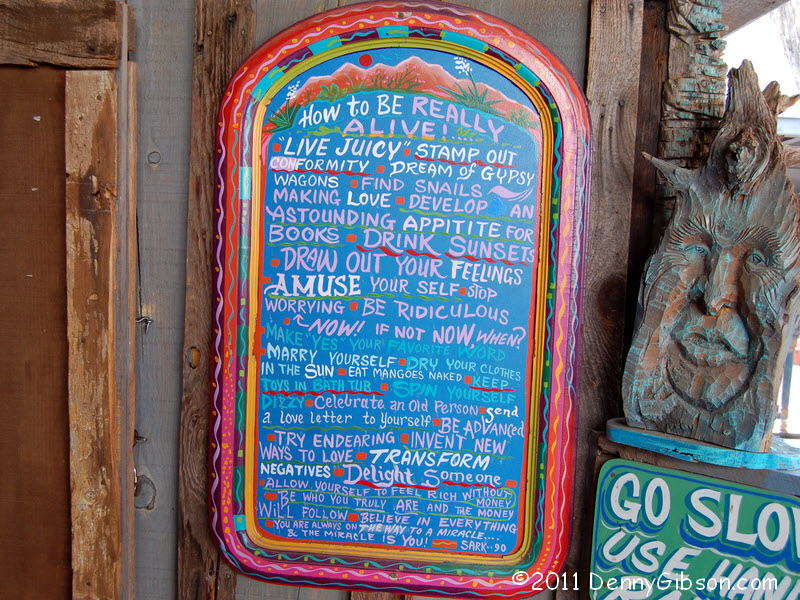 HOW TO BE REALLY
ALIVE!
"LIVE JUICY" STAMP OUT
CONFORMITY DREAM OF GYPSY
WAGONS FIND SNAILS
MAKING LOVE DEVELOP AN
ASTOUNDING APPITITE FOR
BOOKS DRINK SUNSETS
DRAW OUT YOUR FEELINGS
AMUSE YOUR SELF STOP
WORRYING BE RIDICULOUS
NOW! IF NOT NOW, WHEN?
MAKE YES YOUR FAVORITE WORD
MARRY YOURSELF DRY YOUR CLOTHES
IN THE SUN EAT MANGOES NAKED KEEP
TOYS IN BATH TUB SPIN YOURSELF
DIZZY Celebrate an Old Person send
a love letter to Yourself BE ADVANCED
TRY ENDEARING INVENT NEW
WAYS TO LOVE TRANSFORM
NEGATIVES Delight Someone
ALLOW YOURSELF TO FEEL RICH WITHOUT
MONEY
BE WHO YOU TRULY ARE AND THE MONEY
WILL FOLLOW BELIEVE IN EVERYTHING
YOU ARE ALWAYS ON THE WAY TO A MIRACLE....
& THE MIRACLE IS YOU! SARK..90
GO SLOW
USE
©2011 DennyGibson.com